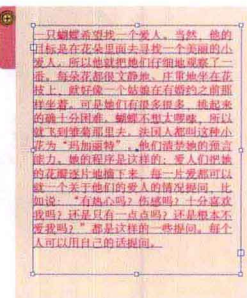 一只蝴蝶希望找一个爱人。当然，他的
目标是在花朵里面去寻找一个美丽的小
爱人。所以他就把她们仔细地观察了一
番。每朵花都很文静地、庄重地坐在花
枝上，就好像一个姑娘在有婚约之前那
样坐着。可是她们有很多很多，挑起来
的确十分困难。蝴蝶不想太啰嗦，所以
就飞到雏菊那里去。法国人都叫这种小
花为“玛加丽特”，他们清楚她的预言
能力。她的程序是这样的：爱人们把她
的花瓣逐片地摘下来，每一片爱都可以
就一个关于他们的爱人的情况提问。比
如说：“有热心吗？伤感吗？十分喜欢
我吗？还是只有一点点吗？还是根本不
爱我吗？”都是这样的一些提问。每个
人可以用自己的话提问。